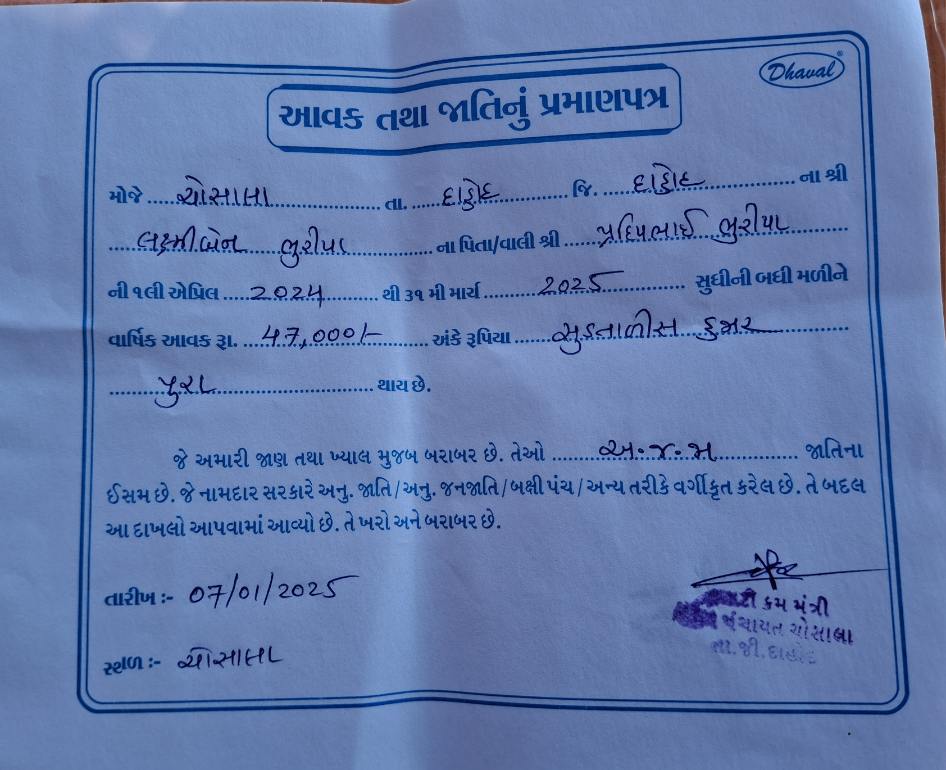 Dhaval
આવક તથા જાતિનું પ્રમાણપત્ર
મોજે ચોસાલા તા. દાહોદ જિ. દાહોદ ના શ્રી
લક્ષ્મીબેન ભુરીયા ના પિતા/વાલી શ્રી પ્રદિપભાઈ ભુરીયા
ની ૧લી એપ્રિલ 2024 થી ૩૧ મી માર્ચ 2025 સુધીની બધી મળીને
વાર્ષિક આવક રૂા. 47,000/- અંકે રૂપિયા સુડતાળીસ હજાર
પુરા થાય છે.
જે અમારી જાણ તથા ખ્યાલ મુજબ બરાબર છે. તેઓ અ.જ.જા જાતિના
ઈસમ છે. જે નામદાર સરકારે અનુ. જાતિ/અનુ. જનજાતિ/બક્ષી પંચ/અન્ય તરીકે વર્ગીકૃત કરેલ છે. તે બદલ
આ દાખલો આપવામાં આવ્યો છે. તે ખરો અને બરાબર છે.
તારીખ :- 07/01/2025
કમ મંત્રી
પંચાયત ચોસાલા
તા.જી.દાહોદ
સ્થળ :- ચોસાલા